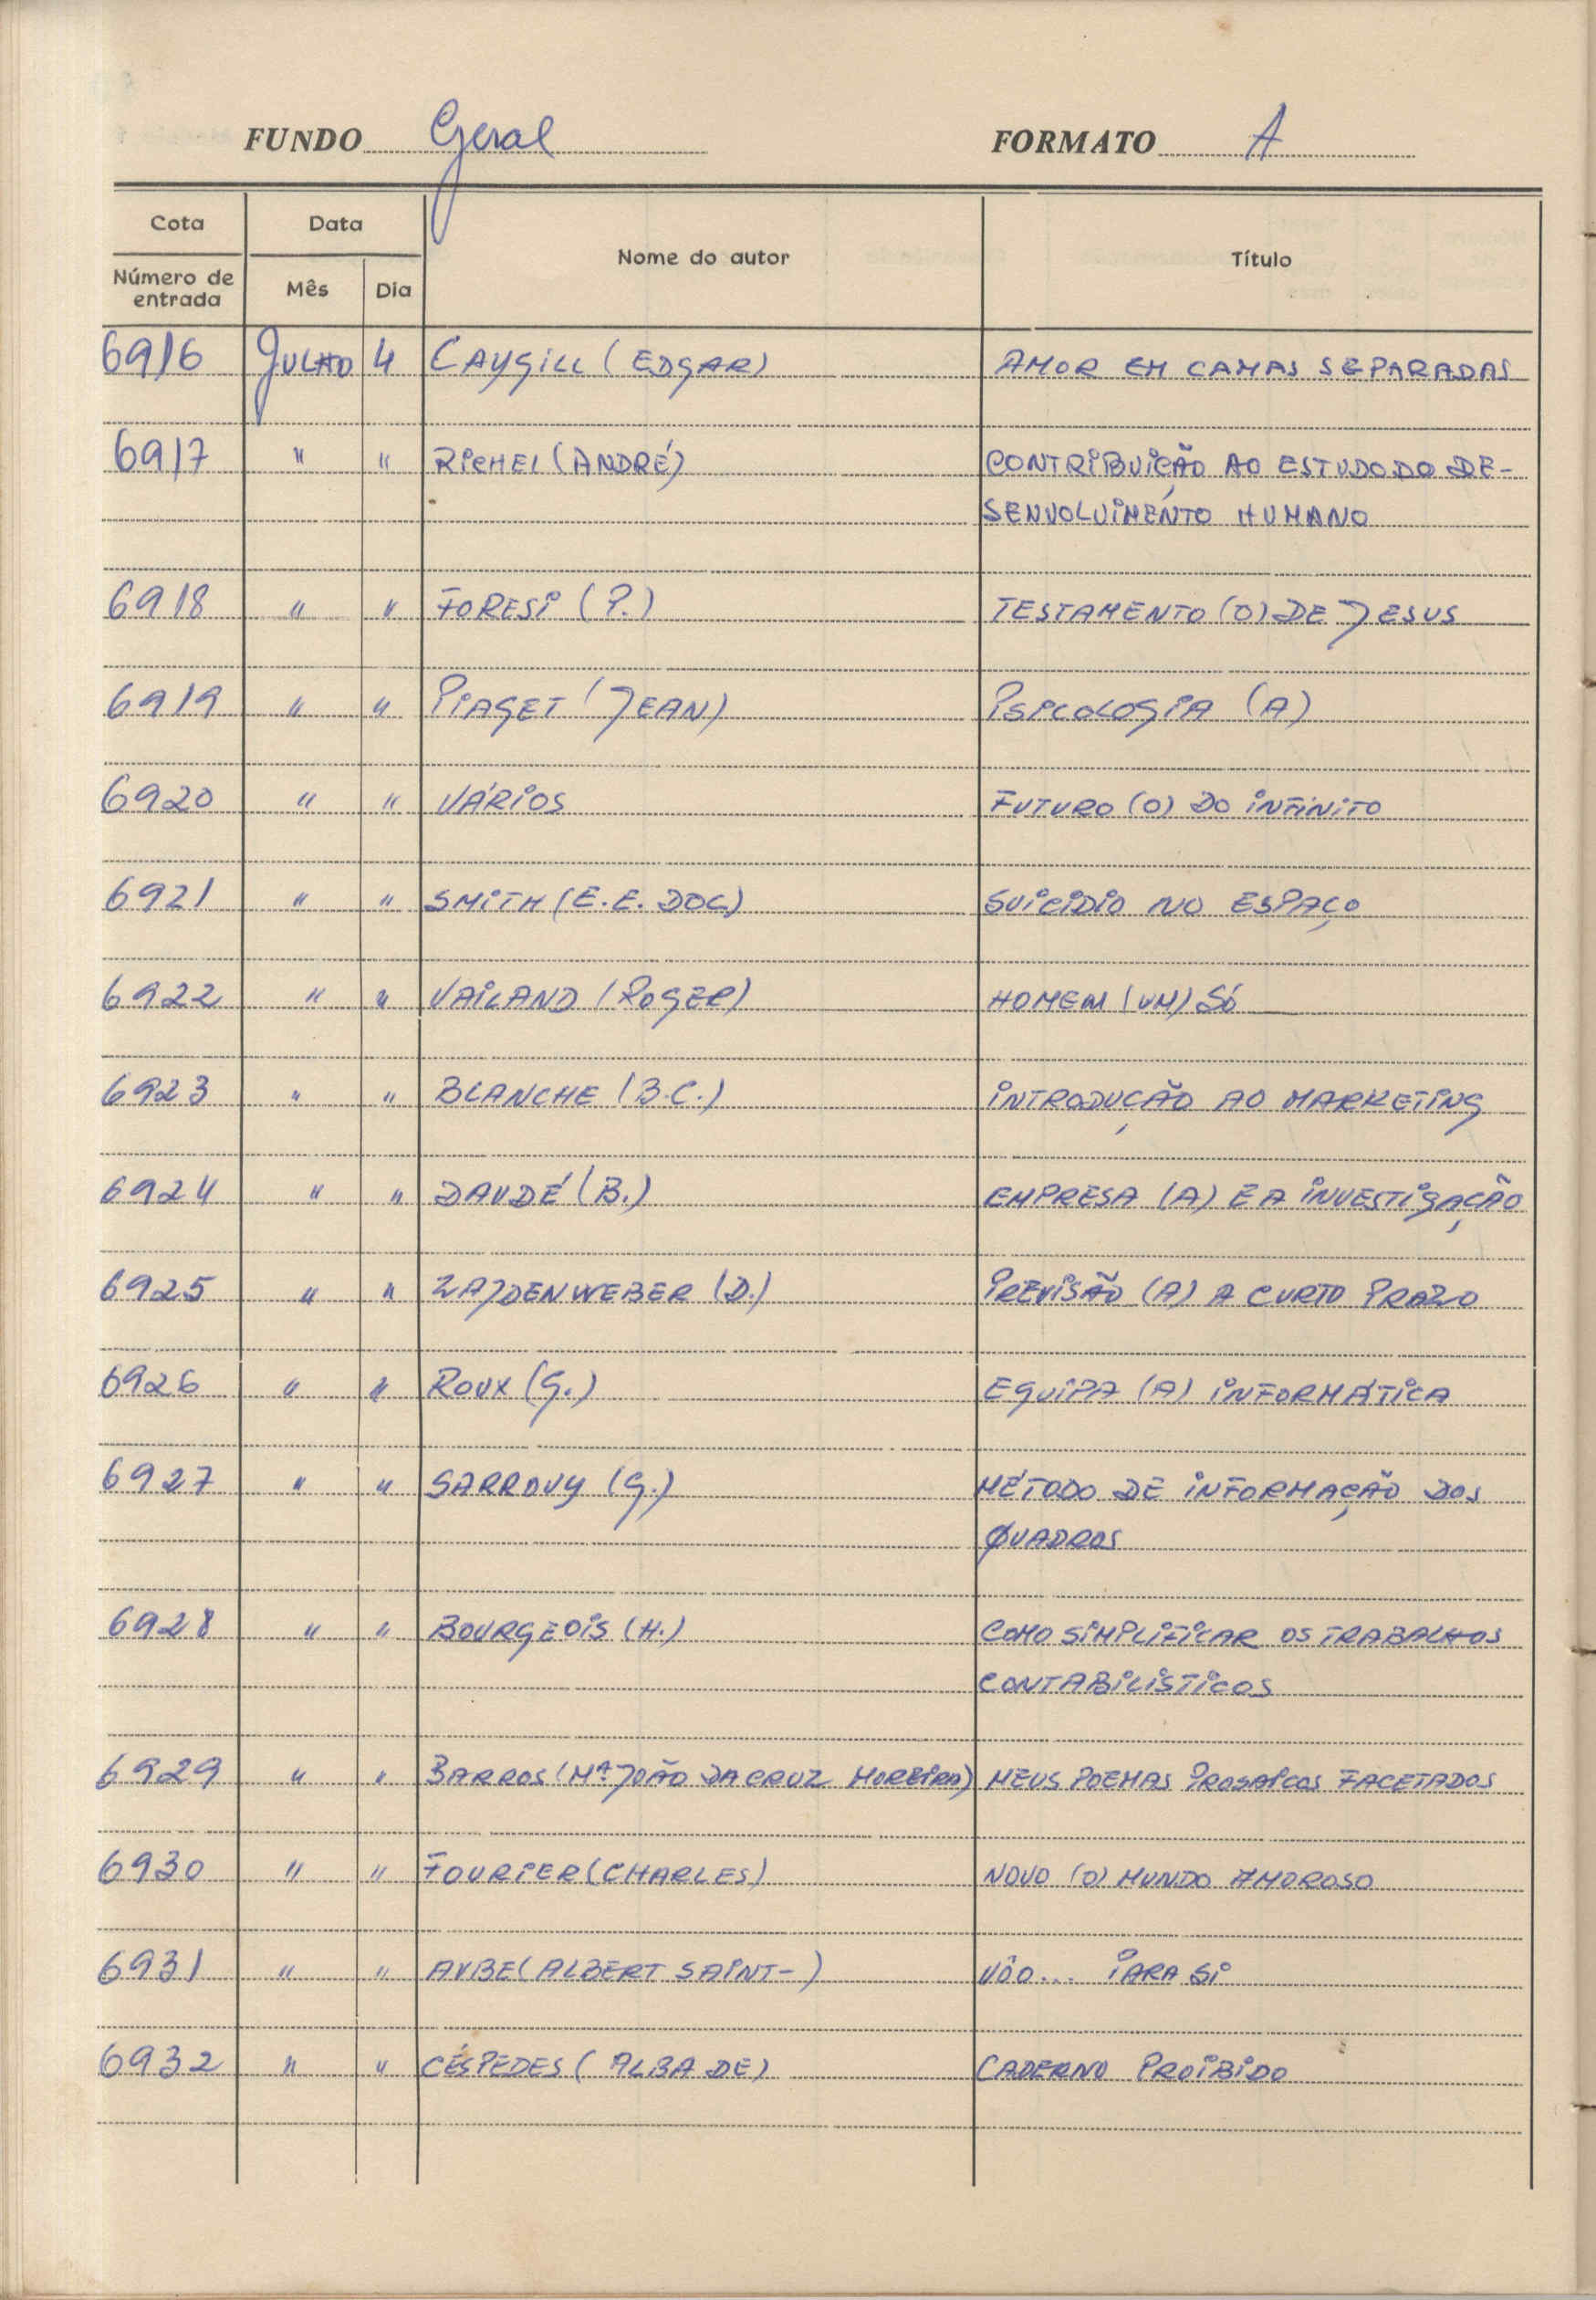 FUNDO Geral FORMATO A
Cota Data Nome do autor Título
Número de entrada Mês Dia
6916 JULHO 4 CAYGILL (EDGAR) AMOR EM CAMAS SEPARADAS
6917 " " RICHEI (ANDRÉ) CONTRIBUIÇÃO AO ESTUDO DO DE-
SENVOLVIMENTO HUMANO
6918 " " FORESI (P.) TESTAMENTO (O) DE JESUS
6919 " " PIAGET (JEAN) PSICOLOGIA (A)
6920 " " VÁRIOS FUTURO (O) DO INFINITO
6921 " " SMITH (E.E. DOC) SUICIDIO NO ESPAÇO
6922 " " VAILAND (ROGER) HOMEM (UM) SÓ
6923 " " BLANCHE (B.C.) INTRODUÇÃO AO MARKETING
6924 " " DAUDÉ (B.) EMPRESA (A) E A INVESTIGAÇÃO
6925 " " ZAJDENWEBER (D.) PREVISÃO (A) A CURTO PRAZO
6926 " " ROUX (G.) EQUIPA (A) INFORMÁTICA
6927 " " SARROUY (G.) MÉTODO DE INFORMAÇÃO DOS
QUADROS
6928 " " BOURGEOIS (H.) COMO SIMPLIFICAR OS TRABALHOS
CONTABILISTICOS
6929 " " BARROS (Mª JOÃO DA CRUZ MOREIRA) MEUS POEMAS PROSAICOS FACETADOS
6930 " " FOURIER (CHARLES) NOVO (O) MUNDO AMOROSO
6931 " " AUBE (ALBERT SAINT-) VÔO... PARA SI
6932 " " CÉSPEDES (ALBA DE) CADERNO PROIBIDO